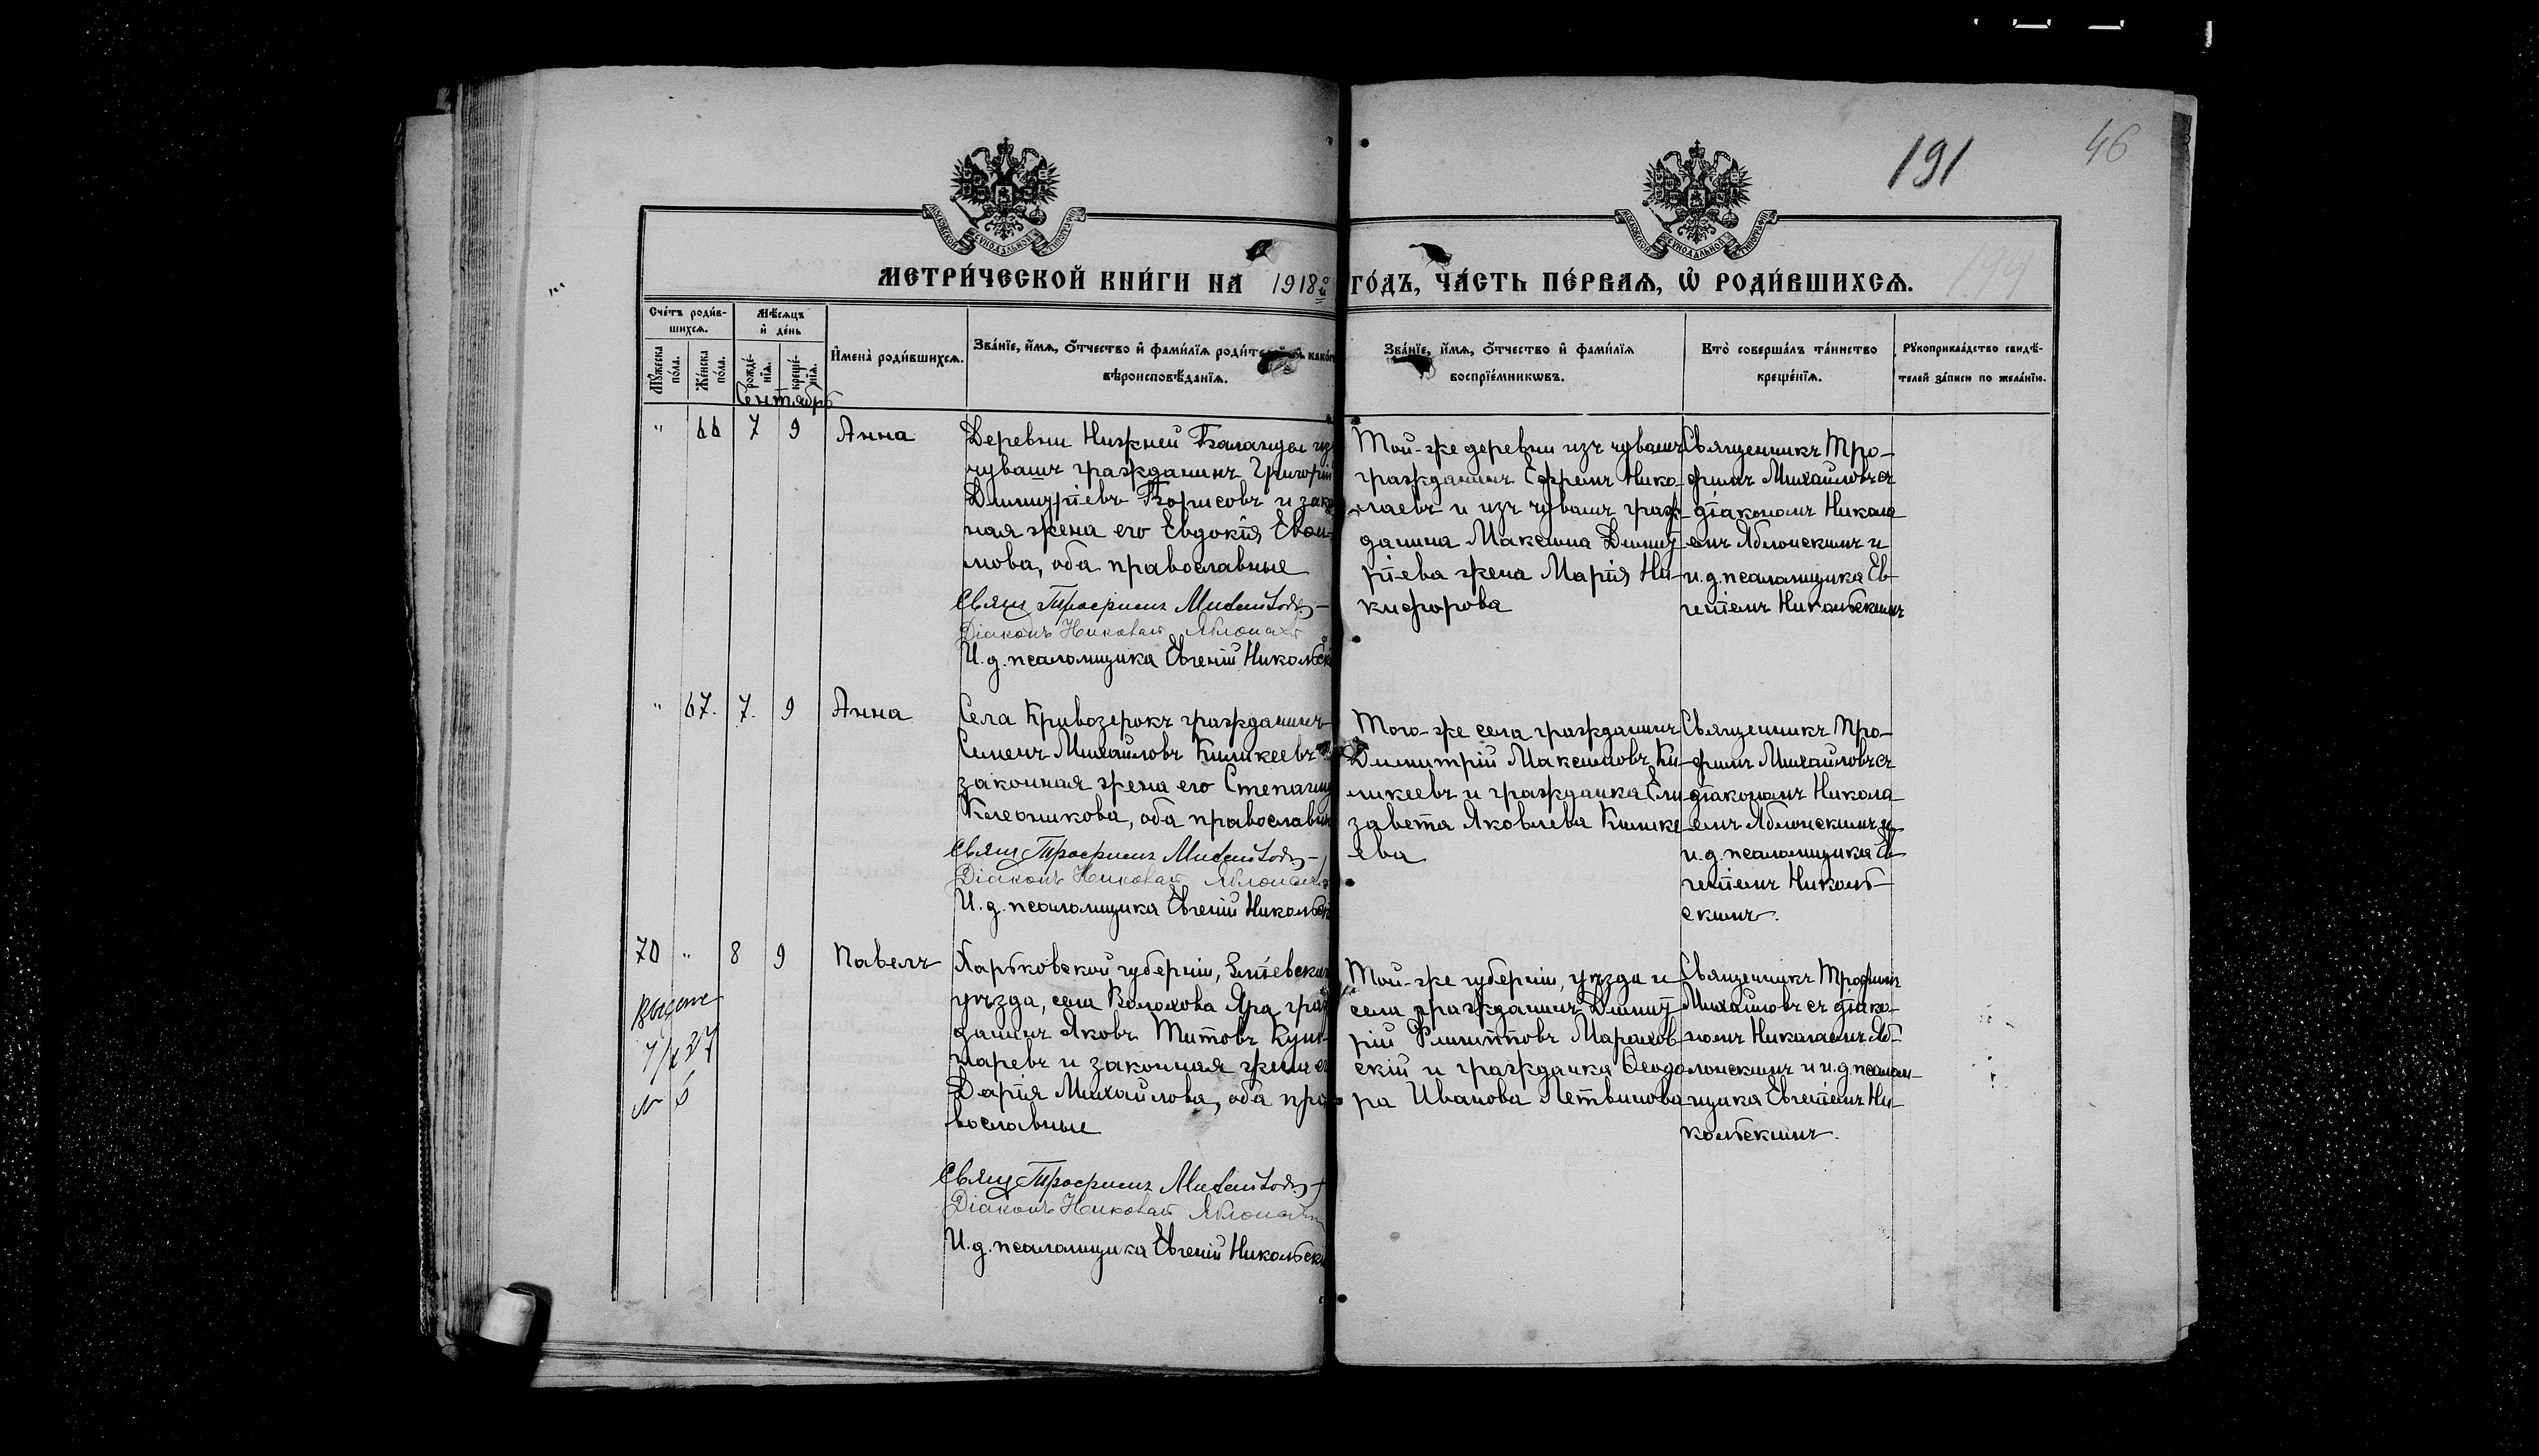 191
46
МОСКОВСКОЙ СѴНОДАЛЬНОЙ ТИПОГРАФІИ
МОСКОВСКОЙ СѴНОДАЛЬНОЙ ТИПОГРАФІИ
МЕТРИ́ЧЕСКОЙ КНИ́ГИ НА 1918й ГО́ДЪ, ЧА́СТЬ ПЕ́РВАѦ, Ѡ҆ РОДИ́ВШИХСѦ.
Сче́тъ роди́в-
шихсѧ.
Мꙋ́жеска по́ла.
Же́нска по́ла.
Мѣ́сѧцъ
и҆ де́нь
рожде́-
нїѧ.
креще́-
нїѧ.
И҆мена̀ роди́вшихсѧ.
Зва́нїе, и҆́мѧ, ѻ҆́тчество и҆ фами́лїѧ
вѣроисповѣ́данїѧ.
Зва́нїе, и҆́мѧ, ѻ҆́тчество и҆ фами́лїѧ
воспрїе́мникѡвъ.
Кто̀ соверша́лъ та́инство
креще́нїѧ.
Рꙋкоприкла́дство свидѣ́-
телей за́писи по жела́нїю.
Сентябрь
" 66 7 9 Анна
Деревни Нижней Баланды из
чувашъ гражданинъ Григорій
Димитріевъ Борисовъ и зако
ная жена его Евдокія Евѳи-
мова, оба православные
Свящ Трофимъ Михайловъ
Діаконъ Николай Яблонскій
И.д. псаломщика Евгеній Никольскі
Той-же деревни изъ чувашъ
гражданинъ Ефремъ Нико-
лаевъ и изъ чувашъ граж-
данина Максима Димит
ріева жена Марія Ни-
кифорова
Священникъ Тро-
фимъ Михайловъ съ
діакономъ Никола
емъ Яблонскимъ и
и.д. псаломщика Ев-
геніемъ Никольскимъ
" 67. 7. 9 Анна
Села Кривозерокъ гражданинъ
Семенъ Михайловъ Киликеевъ
законная жена его Степанида
Клеоникова, оба православн
Свящ Трофимъ Михайловъ
Діаконъ Николай Яблонскій
И.д. псаломщика Евгеній Никольск
Того-же села гражданинъ
Димитрій Максимовъ Ки-
ликеевъ и гражданка Ели-
завета Яковлева Килике
ева
Священникъ Тро-
фимъ Михайловъ съ
діакономъ Никола
емъ Яблонскимъ и
и.д. псаломщика Ев
геніемъ Николь-
скимъ.
70 " 8 9 Павелъ
7/X 27
№ 5
Харьковской губерніи, Зміевскаг
уѣзда, села Волохова Яра граж
данинъ Яковъ Титовъ Куш-
наревъ и законная жена ег
Дарія Михайлова, оба пра
вославные
Свящ Трофимъ Михайловъ
Діаконъ Николай Яблонскій
И.д. псаломщика Евгеній Никольскі
Той-же губерніи, уѣзда и
села гражданинъ Димит
рій Филипповъ Марахов-
скій и гражданка Ѳеодо
ра Иванова Летвинова
Священникъ Трофимъ
Михайловъ съ діако-
номъ Николаемъ Яб-
лонскимъ и и.д. псалом-
щика Евгеніемъ Ни-
кольскимъ.